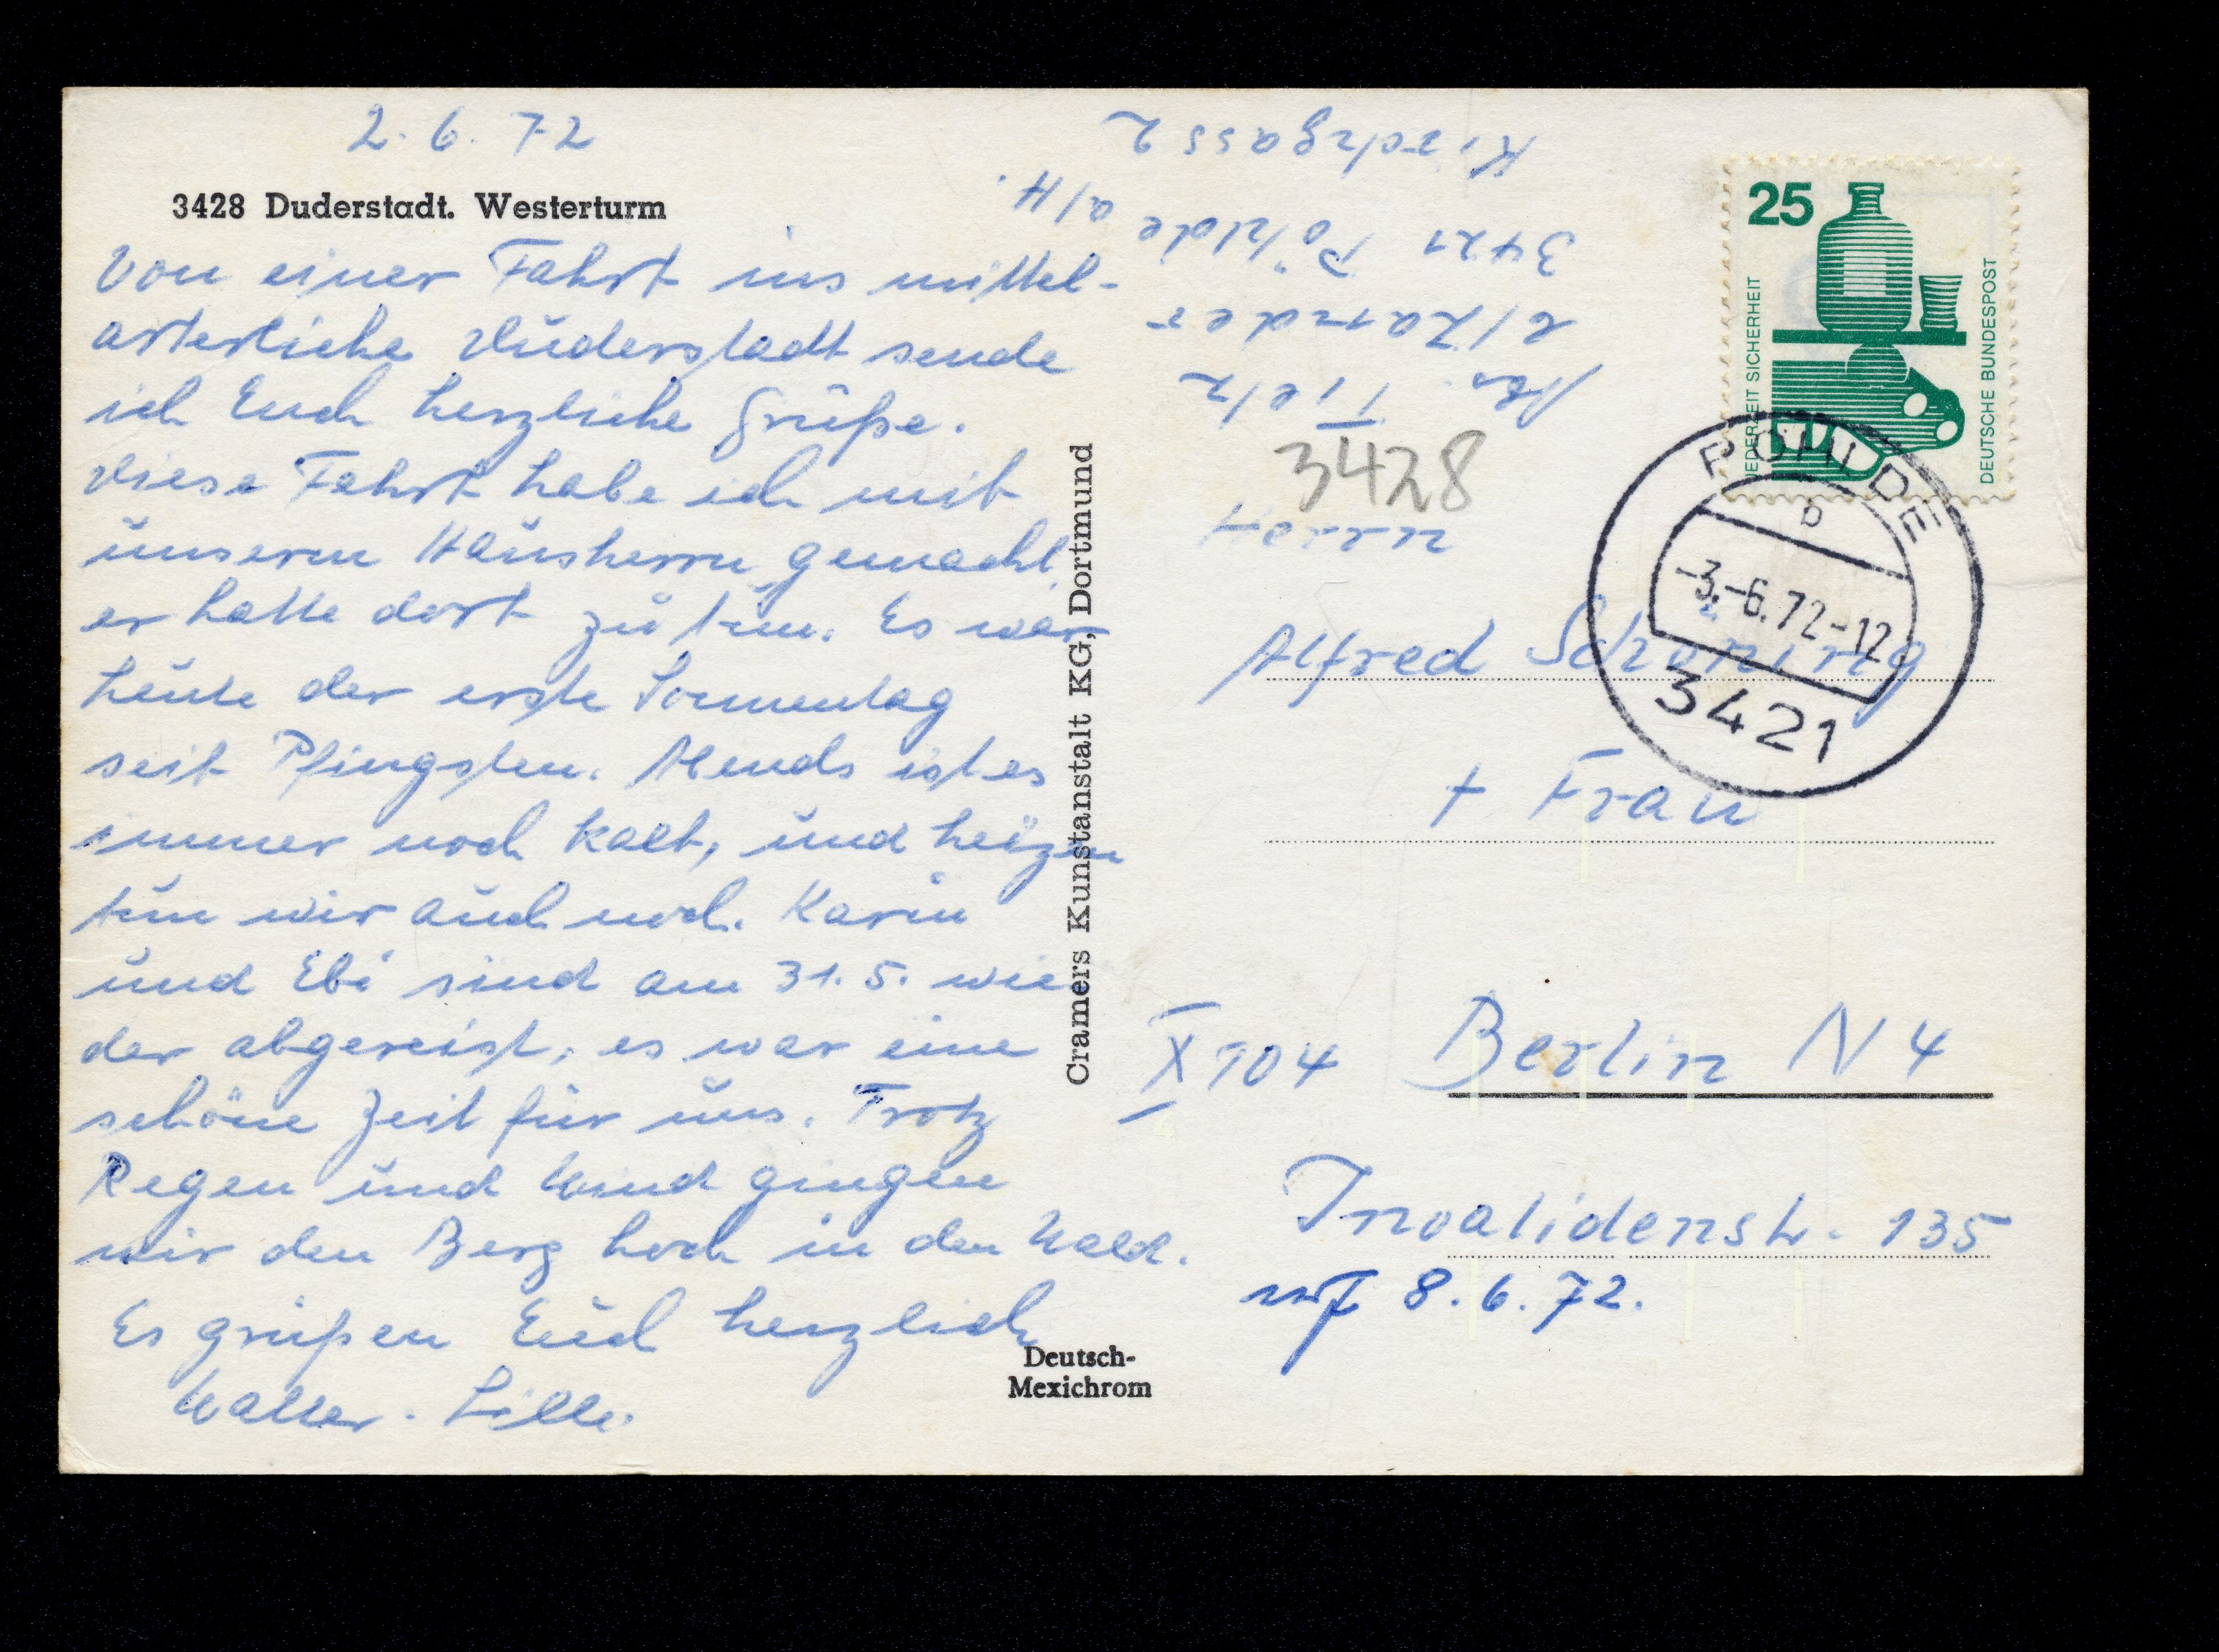 2. 6. 72
3428 Duderstadt. Westerturm
Von einer Fahrt ins mittel-
arterliche Duderstadt sende
ich Euch herzliche Grüße.
Diese Fahrt habe ich mit
unserm Hausherrn gemacht,
er hatte dort zu tun. Es war
heute der erste Sonnentag
seit Pfingsten. Abends ist es
immer noch kalt, und heizen
tun wir auch noch. Karin
und Ebi sind am 31. 5. wie
der abgereist, es war eine
schöne Zeit für uns. Trotz
Regen und Wind gingen
wir den Berg hoch in den Wald.
Es grüßen Euch herzlich
Walter. Lilli.
Cramers Kunstanstalt KG, Dortmund
Deutsch-
Mexichrom
Abs. Tietz
b/Zander
3421 Pöhlde a/H.
Kirchgass 2
25
JEDERZEIT SICHERHEIT
DEUTSCHE BUNDESPOST
PÖHLDE
b
-3.-6.72-12
3421
3428
Herrn
Alfred Schöning
+ Frau
X 104 Berlin N 4
Invalidenstr. 135
8. 6. 72.